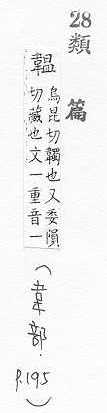 28
類篇
韞
烏昆切韣也又委隕
切藏也文一重音一
(韋部. p.195)